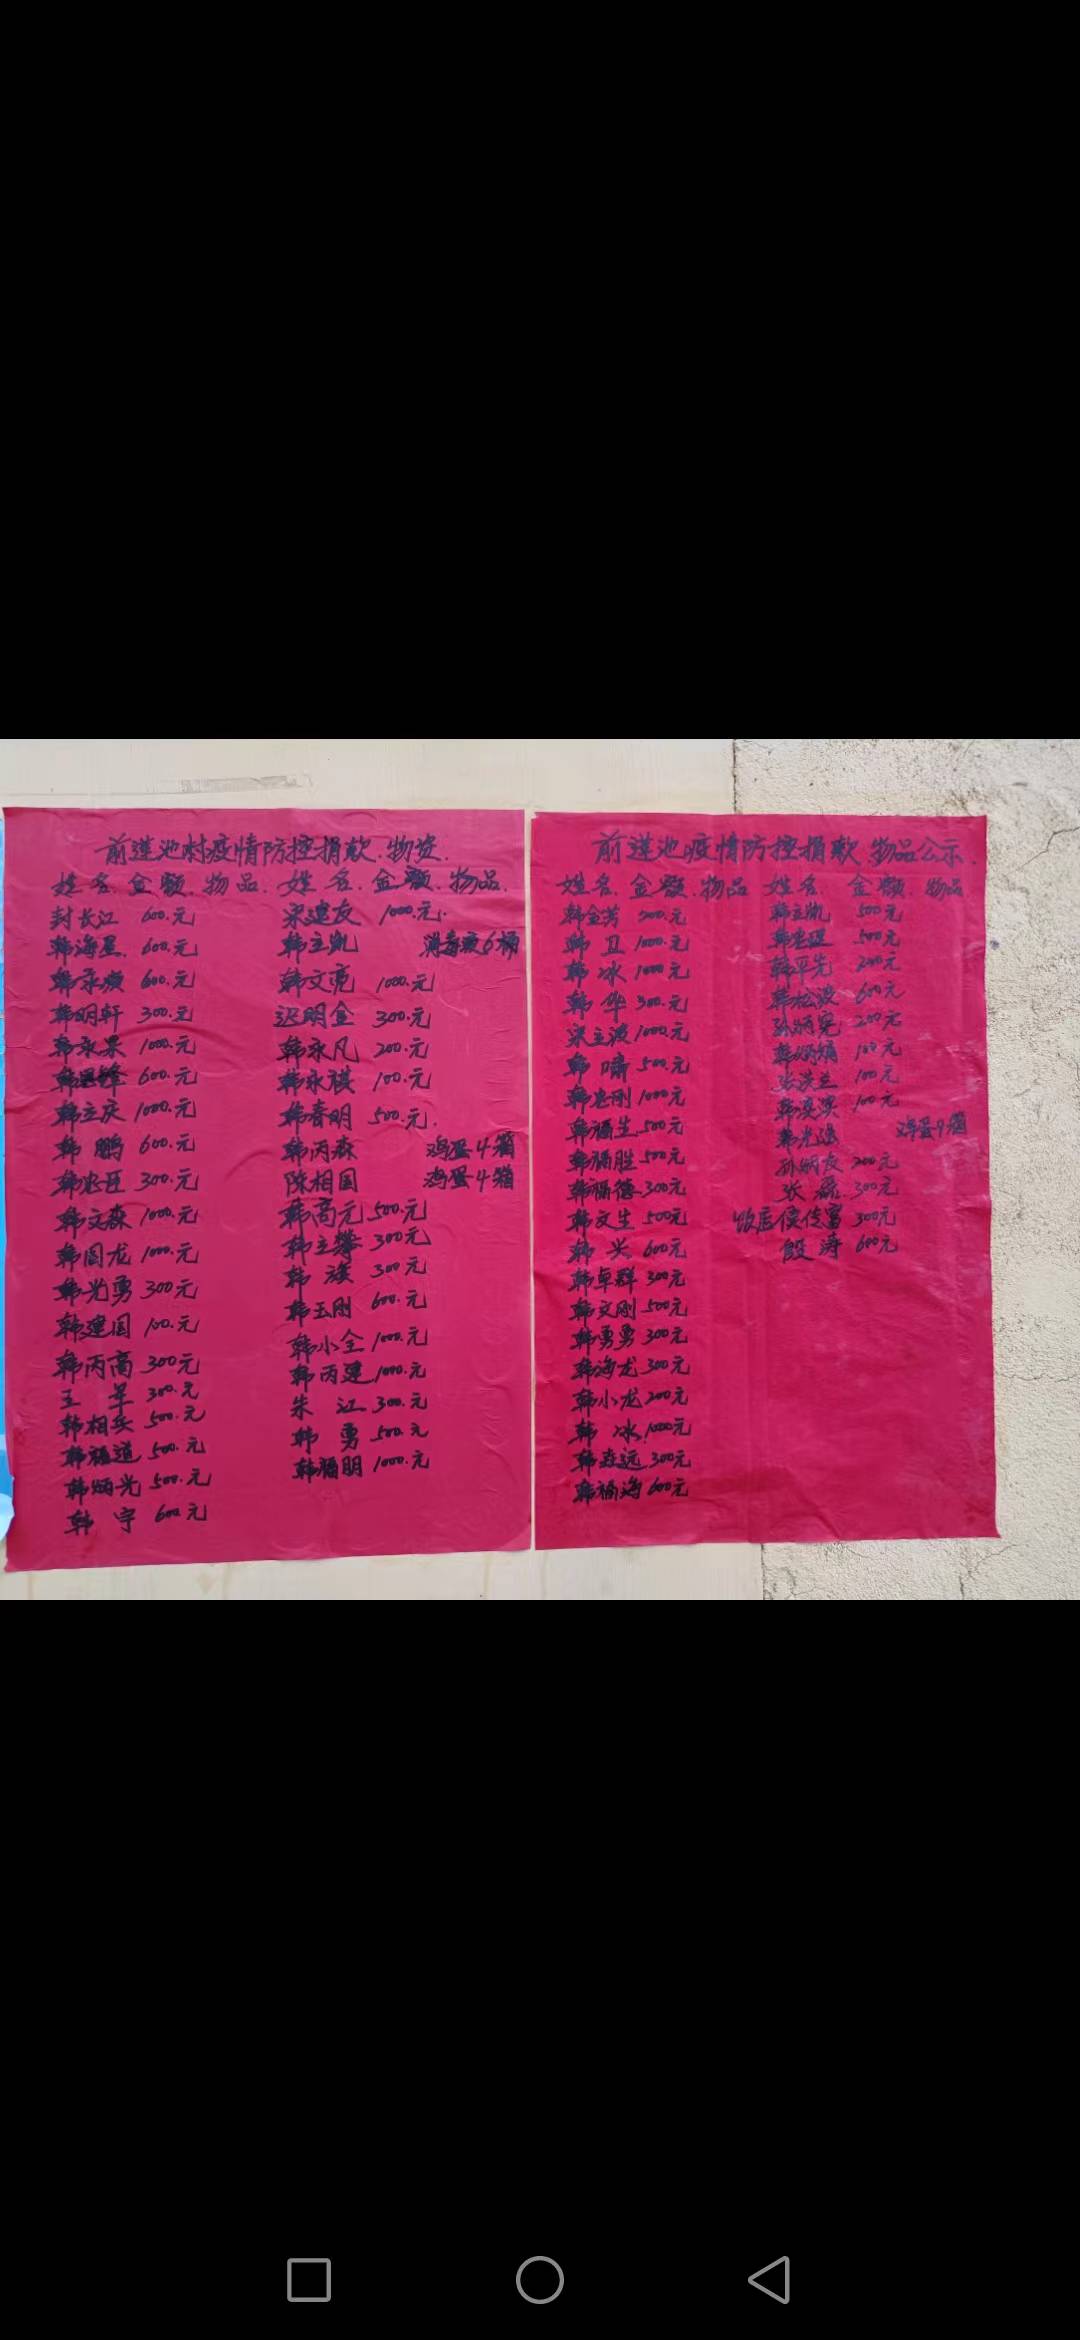 前莲池村疫情防控捐款.物资.
姓名.金额.物品.姓名.金额.物品.
封长江 600.元
韩海星 600.元
韩永顺 600.元
韩明轩 300.元
韩永果 1000.元
韩 600.元
韩立庆 1000.元
韩鹏 600.元
韩忠臣 300.元
韩文森 1000.元
韩国龙 1000.元
韩光勇 300元
韩建国 100.元
韩丙高 300元
王军 300.元
韩相兵 500.元
韩福道 500.元
韩炳光 500.元
韩宇 600元
宋建友 1000.元.
韩立凯 消毒液6桶
韩文亮 1000.元
迟明金 300.元
韩永凡 200.元
韩永祺 100.元
韩春明 500.元.
韩丙森 鸡蛋4箱
陈相国 鸡蛋4箱
韩高元 500.元
韩立攀 300元
韩旗 300元
韩玉刚 600.元
韩小全 1000.元
韩丙建 1000.元
朱江 300.元
韩勇 500.元
韩福明 1000.元
前莲池疫情防控捐款.物品公示.
姓名.金额.物品 姓名.金额.物品
韩金芳 200.元
韩卫 1000.元
韩冰 1000元
韩华 300.元
宋立波 1000.元
韩啸 500.元
韩忠刚 1000元
韩福生 500元
韩福胜 500元
韩福德 300元
韩文生 500元
韩兴 600元
韩卓群 300元
韩文刚 500元
韩勇勇 300元
韩海龙 300元
韩小龙 200元
韩冰 1000元
韩森远 300元
韩福海 600元
韩立凯 500元
韩 500元
韩平先 200元
韩松波 600元
孙炳宪 200元
韩炳娟 100元
张洪兰 100元
韩 100元
韩光强 鸡蛋9箱
孙炳友 200元
张磊 300元
饭店侯传富 300元
殷涛 600元